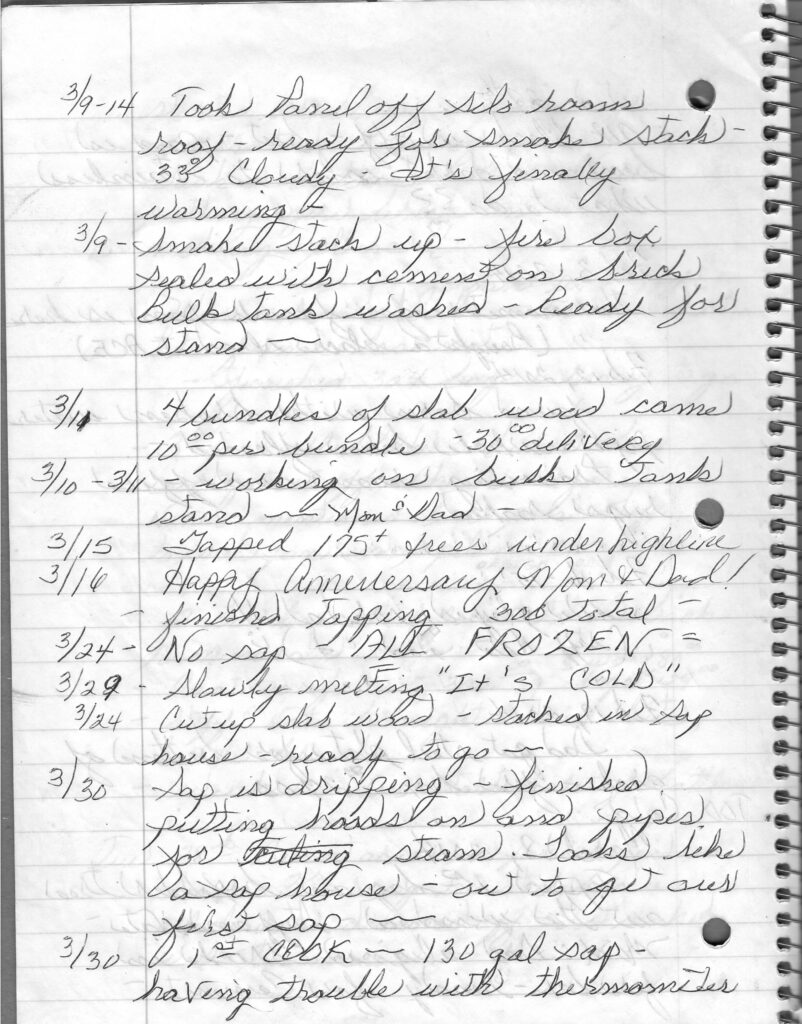 3/9-14 Took Panel off silo room
roof - ready for smoke stack -
33° Cloudy - It's finally
warming -
3/9 - Smoke stack up - fire box
sealed with cement on brick
Bulk tank washed - Ready for
stand ~
3/11 4 bundles of slab wood came
10.00 per bundle - 30.00 delivery
3/10 - 3/11 - working on bulk Tank
stand ~ Mom & Dad -
3/15 Tapped 175+ trees under highline
3/16 Happy Anniversary Mom & Dad!
- finished Tapping 300 Total -
3/24 - No sap - ALL FROZEN =
3/29 - Slowly melting "It's COLD"
3/24 Cut up slab wood - stacked in sap
house - ready to go ~
3/30 Sap is dripping - finished
putting hoods on and pipes
for steam. Looks like
a sap house - out to get our
first sap ~
3/30 1st COOK ~ 130 gal sap -
having trouble with thermometer